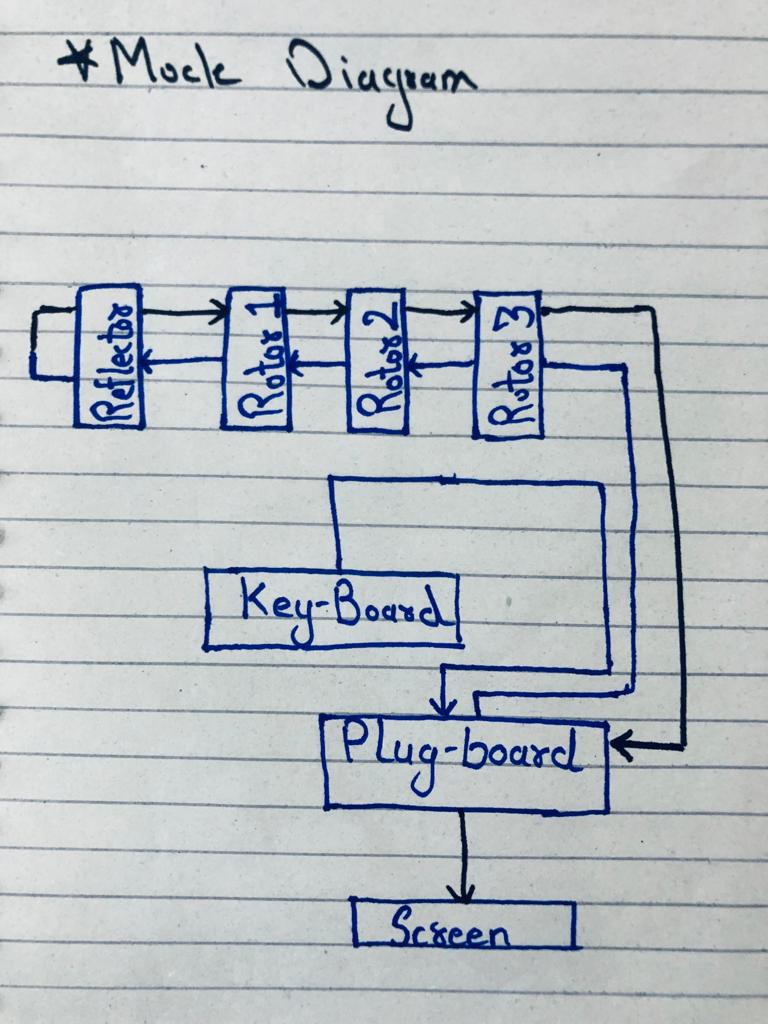 * Mock Diagram
Reflector
Rotor 1
Rotor 2
Rotor 3
Key-Board
Plug-board
Screen